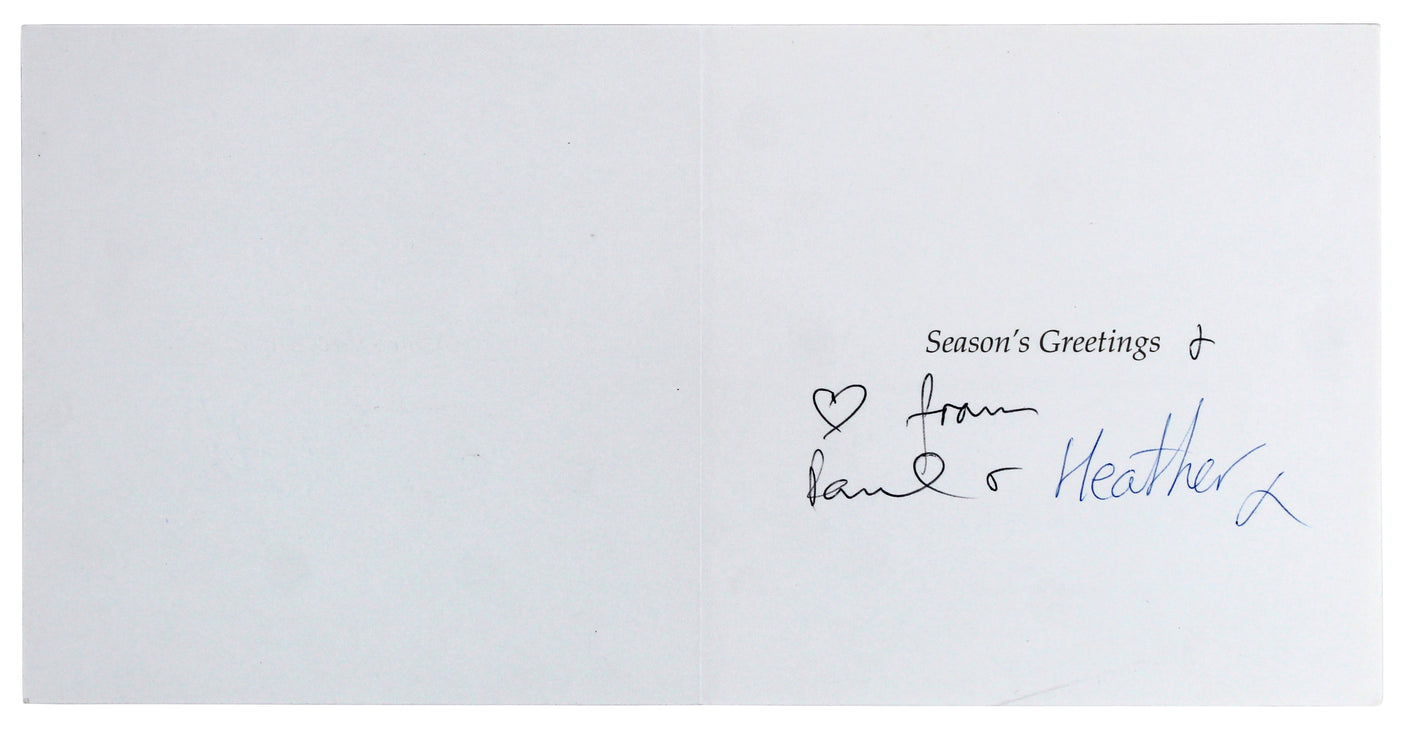 Season's Greetings &
♡ from
Paul & Heather x